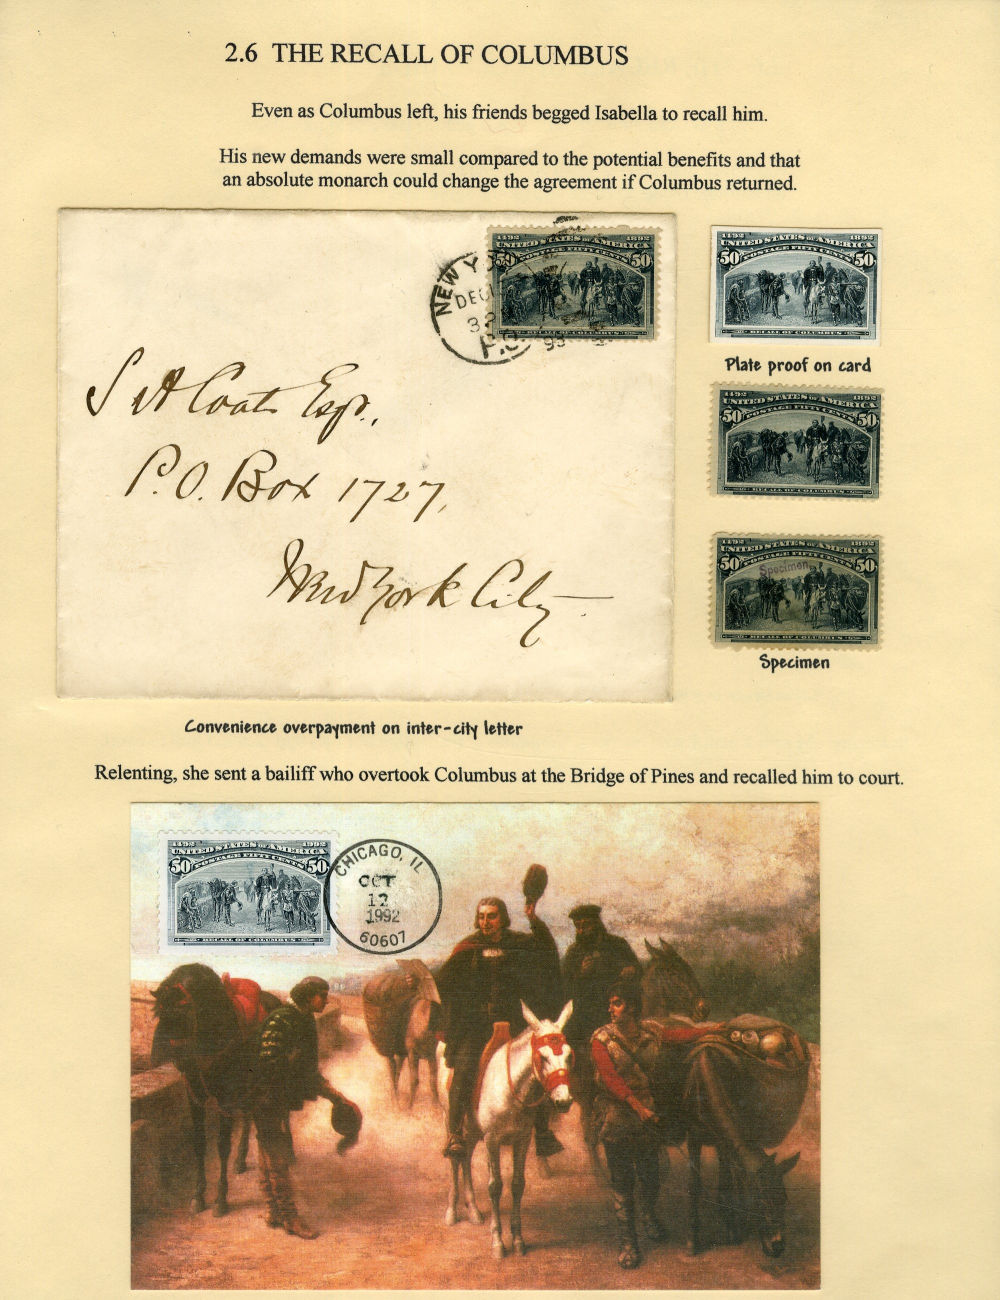 2.6 THE RECALL OF COLUMBUS
Even as Columbus left, his friends begged Isabella to recall him.
His new demands were small compared to the potential benefits and that
an absolute monarch could change the agreement if Columbus returned.
1492 1892
UNITED STATES OF AMERICA
50 POSTAGE FIFTY CENTS 50
RECALL OF COLUMBUS
NEW Y
DEC
P.O.
93
S A Coats Esqr.,
P.O. Box 1727,
New York City
1492 1892
UNITED STATES OF AMERICA
50 POSTAGE FIFTY CENTS 50
RECALL OF COLUMBUS
Plate proof on card
1492 1892
UNITED STATES OF AMERICA
50 POSTAGE FIFTY CENTS 50
RECALL OF COLUMBUS
1492 1892
UNITED STATES OF AMERICA
50 POSTAGE FIFTY CENTS 50
Specimen
RECALL OF COLUMBUS
Specimen
Convenience overpayment on inter-city letter
Relenting, she sent a bailiff who overtook Columbus at the Bridge of Pines and recalled him to court.
1492 1992
UNITED STATES OF AMERICA
50 POSTAGE FIFTY CENTS 50
RECALL OF COLUMBUS
CHICAGO, IL
OCT
12
1992
60607